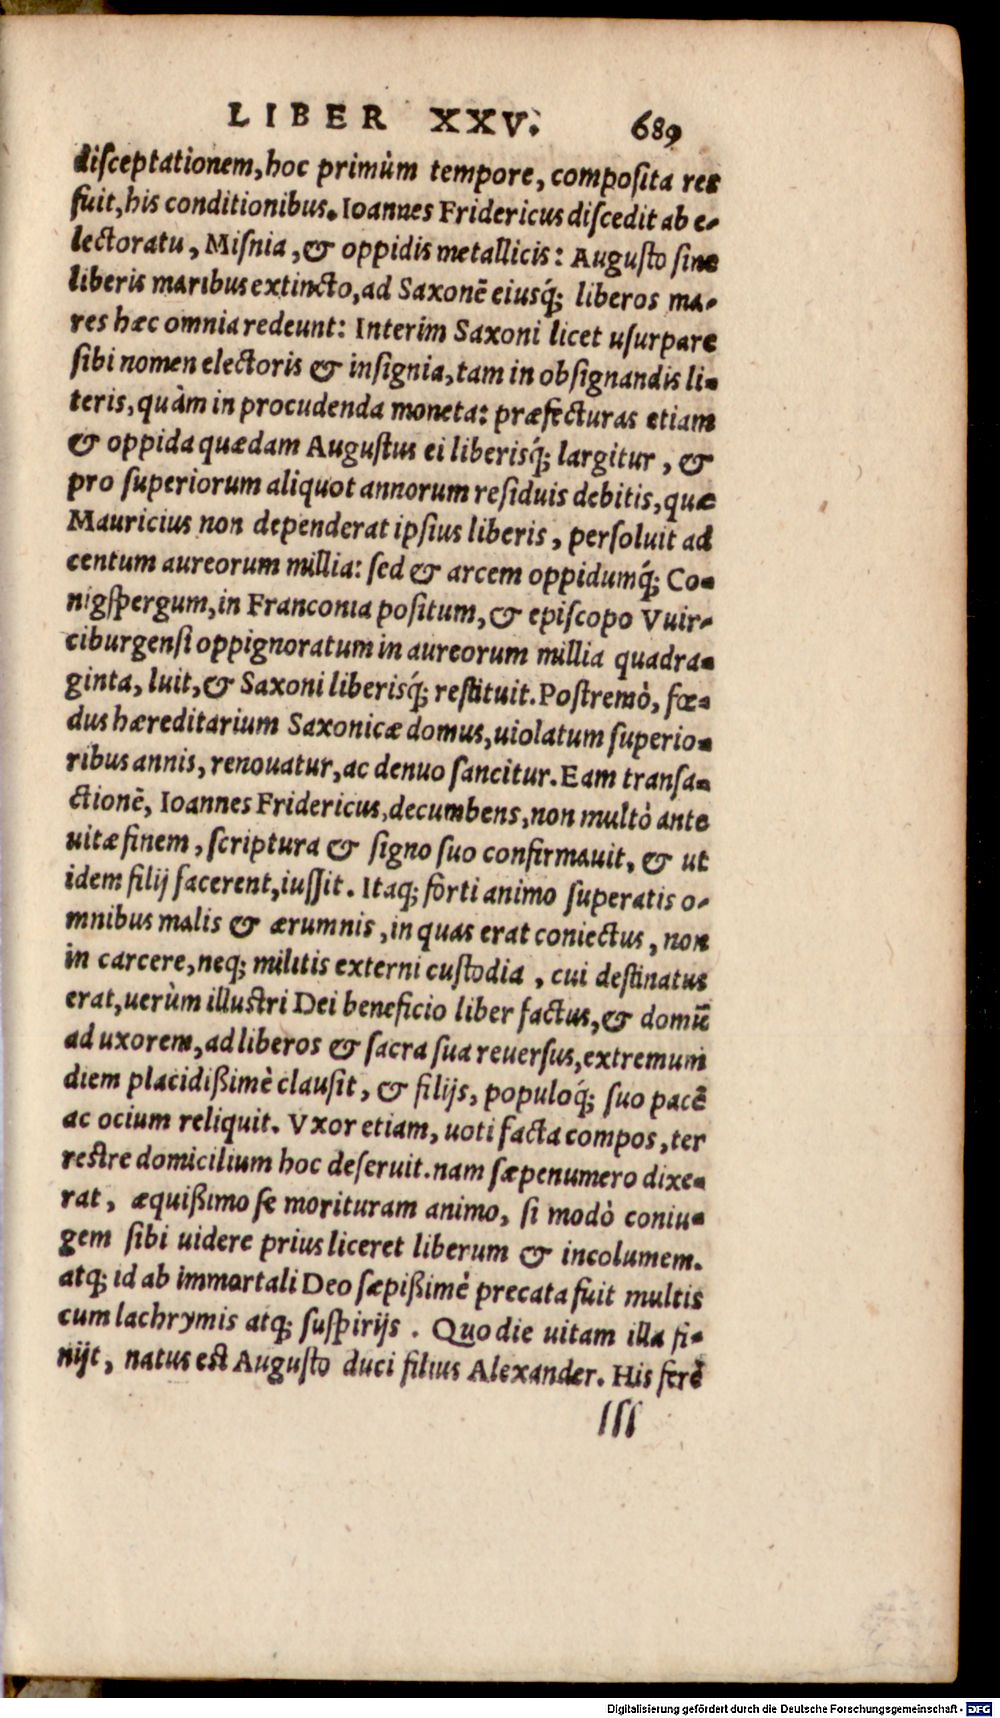 LIBER XXV. 689
diſceptationem, hoc primùm tempore, compoſita res
fuit, his conditionibus. Ioannes Fridericus diſcedit ab e-
lectoratu, Miſnia, & oppidis metallicis: Auguſto ſine
liberis maribus extincto, ad Saxonē eiusq́; liberos ma-
res hæc omnia redeunt: Interim Saxoni licet uſurpare
ſibi nomen electoris & inſignia, tam in obſignandis li-
teris, quàm in procudenda moneta: præfecturas etiam
& oppida quædam Auguſtus ei liberisq́; largitur, &
pro ſuperiorum aliquot annorum reſiduis debitis, quæ
Mauricius non dependerat ipſius liberis, perſoluit ad
centum aureorum millia: ſed & arcem oppidumq́; Co-
nigſpergum, in Franconia poſitum, & epiſcopo Vuir-
ciburgenſi oppignoratum in aureorum millia quadra-
ginta, luit, & Saxoni liberisq́; reſtituit. Poſtremò, fœ-
dus hæreditarium Saxonicæ domus, uiolatum ſuperio-
ribus annis, renouatur, ac denuo ſancitur. Eam tranſa-
ctionē, Ioannes Fridericus, decumbens, non multò ante
uitæ finem, ſcriptura & ſigno ſuo confirmauit, & ut
idem filij facerent, iuſſit. Itaq; forti animo ſuperatis o-
mnibus malis & ærumnis, in quas erat coniectus, non
in carcere, neq; militis externi cuſtodia, cui deſtinatus
erat, uerùm illuſtri Dei beneficio liber factus, & domū
ad uxorem, ad liberos & ſacra ſua reuerſus, extremum
diem placidißimè clauſit, & filijs, populoq́; ſuo pacē
ac ocium reliquit. Vxor etiam, uoti facta compos, ter
reſtre domicilium hoc deſeruit. nam ſæpenumero dixe-
rat, æquißimo ſe morituram animo, ſi modò coniu-
gem ſibi uidere prius liceret liberum & incolumem.
atq; id ab immortali Deo ſæpißimè precata fuit multis
cum lachrymis atq; ſuſpirijs. Quo die uitam illa fi-
nijt, natus eſt Auguſto duci filius Alexander. His ferè
ſſſ
Digitalisierung gefördert durch die Deutsche Forschungsgemeinschaft - DFG